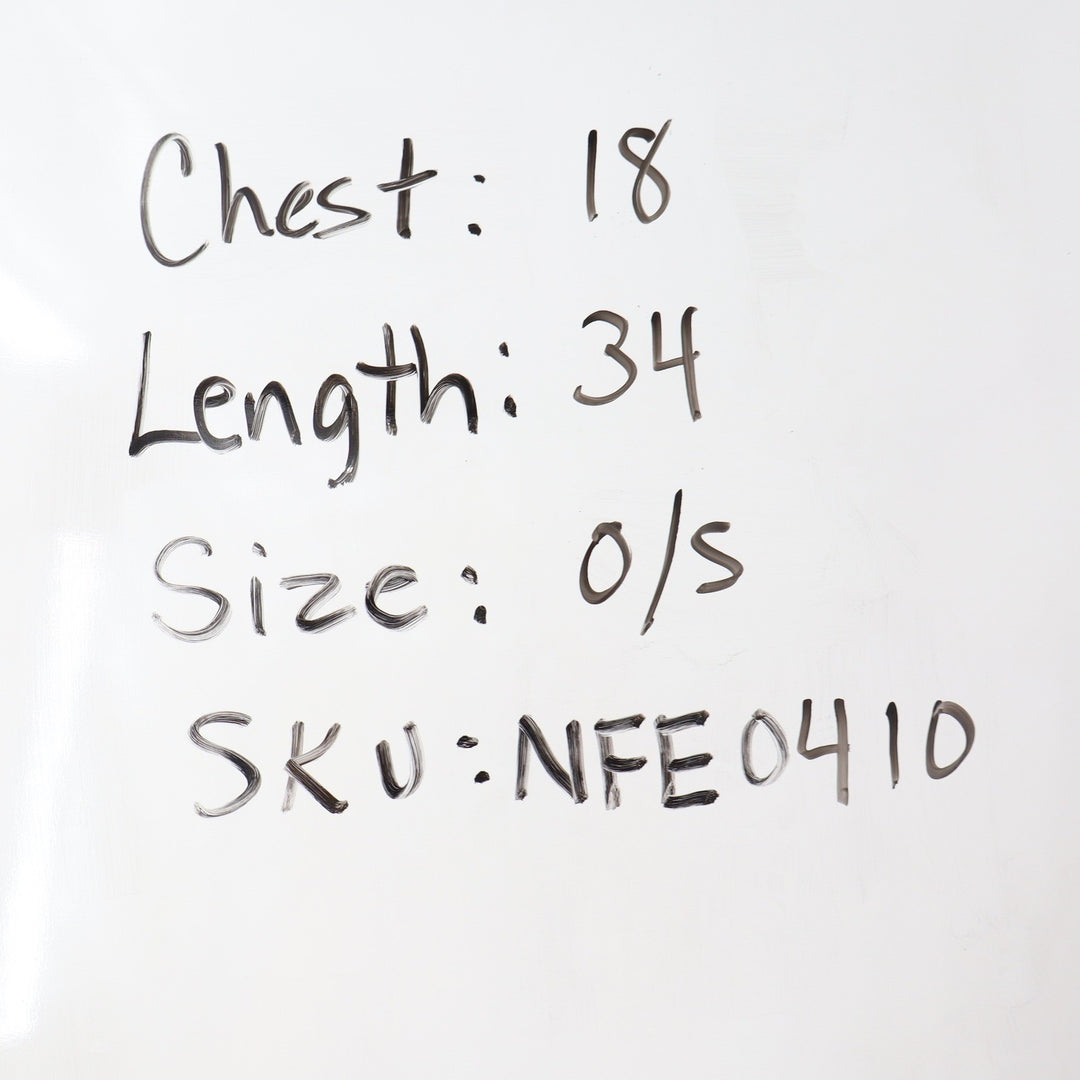 Chest: 18
Length: 34
Size: O/S
SKU: NFE0410